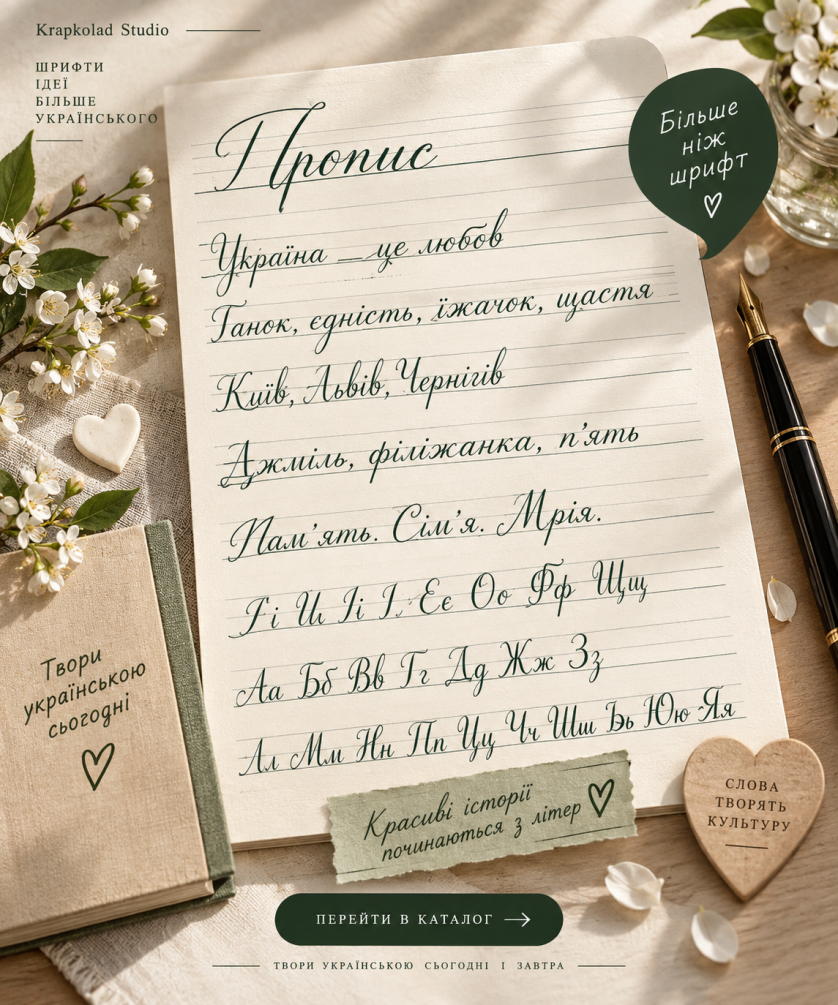 Krapkolad Studio
ШРИФТИ
ІДЕЇ
БІЛЬШЕ
УКРАЇНСЬКОГО
Більше
ніж
шрифт
Пропис
Україна — це любов
Ганок, єдність, їжачок, щастя
Київ, Львів, Чернігів
Джміль, філіжанка, п'ять
Пам'ять. Сім'я. Мрія.
Оо Фф Щщ
Аа Бб Вв Гг Дд Жж Зз
Мм Нн Пп Цц Чч Шш Ьь Юю Яя
Твори
українською
сьогодні
Красиві історії
починаються з літер
СЛОВА
ТВОРЯТЬ
КУЛЬТУРУ
ПЕРЕЙТИ В КАТАЛОГ
ТВОРИ УКРАЇНСЬКОЮ СЬОГОДНІ І ЗАВТРА